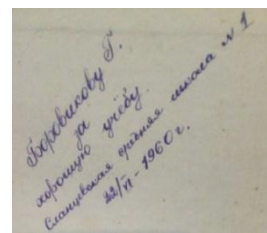 Боровикову Г.
за
хорошую учёбу.
Сланцевская средняя школа № 1
22/VI - 1960 г.